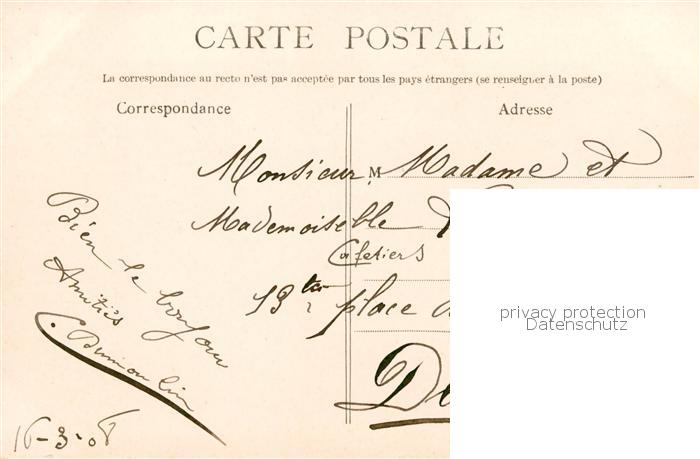 CARTE POSTALE
La correspondance au recto n'est pas acceptée par tous les pays étrangers (se renseigner à la poste)
Correspondance
Adresse
Monsieur M Madame et
Mademoiselle
Cafetiers
19 place
Bien le bonjour
Amitiés
16-3-08
privacy protection
Datenschutz